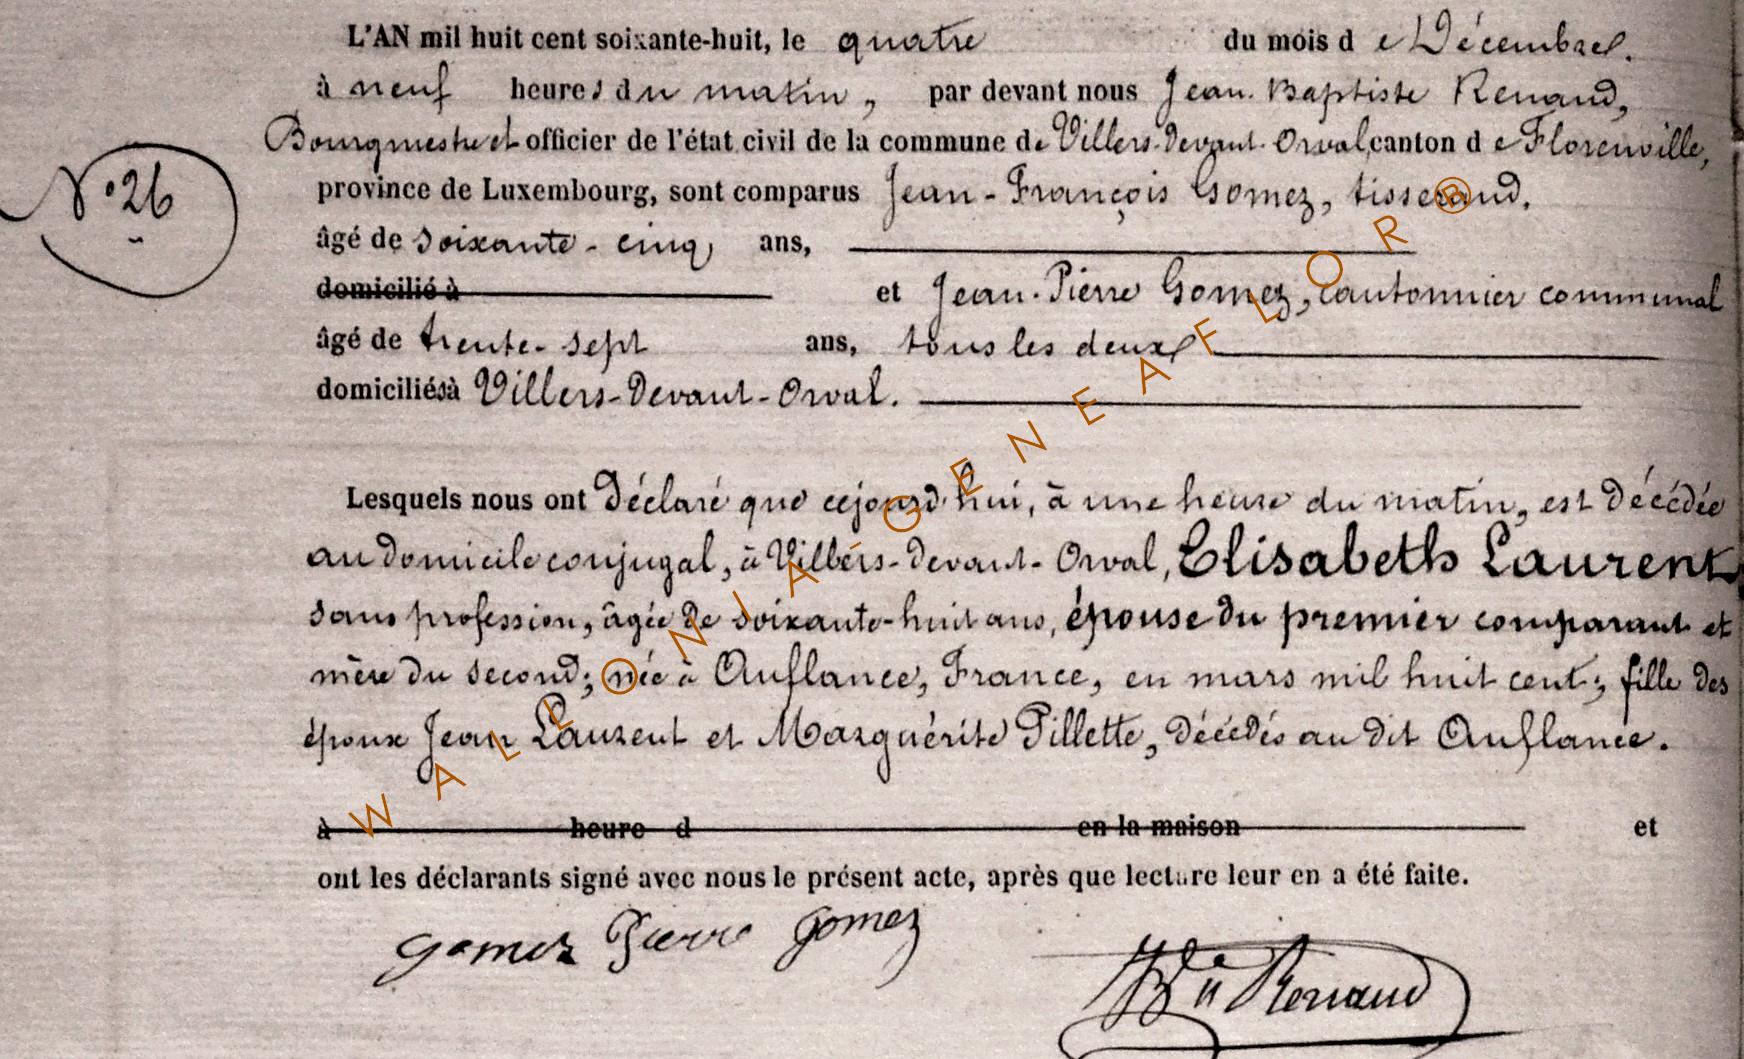 L'AN mil huit cent soixante-huit, le quatre du mois de Décembre.
à neuf heures du matin, par devant nous Jean-Baptiste Renaud,
Bourgmestre et officier de l'état civil de la commune de Villers-devant-Orval, canton de Florenville,
N° 26
province de Luxembourg, sont comparus Jean-François Gomez, tisserand,
âgé de soixante-cinq ans,
domicilié à et Jean-Pierre Gomez, cantonnier communal
âgé de trente-sept ans, tous les deux
domiciliés à Villers-Devant-Orval.
Lesquels nous ont déclaré que cejourd'hui, à une heure du matin, est décédée
au domicile conjugal, à Villers-devant-Orval, Elisabeth Laurent,
sans profession, âgée de soixante-huit ans, épouse du premier comparant et
mère du second; née à Auflance, France, en mars mil huit cent; fille des
époux Jean Laurent et Marguérite Pillette, décédés au dit Auflance.
à heure d en la maison et
ont les déclarants signé avec nous le présent acte, après que lecture leur en a été faite.
gomez Pierre gomez
Renaud
WALLONIA-GENEAFLOR®